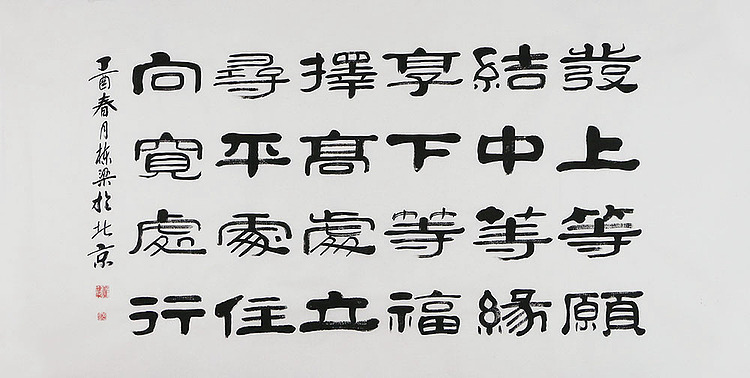 發上等願
結中等緣
享下等福
擇高處立
尋平處住
向寬處行
丁酉春月栋梁於北京